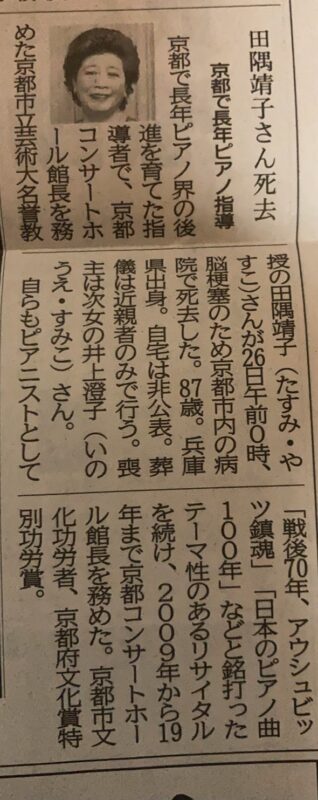 田隅靖子さん死去
京都で長年ピアノ指導
　京都で長年ピアノ界の後
進を育てた指
導者で、京都
コンサートホ
ール館長を務
めた京都市立芸術大名誉教
授の田隅靖子（たすみ・や
すこ）さんが26日午前０時、
脳梗塞のため京都市内の病
院で死去した。87歳。兵庫
県出身。自宅は非公表。葬
儀は近親者のみで行う。喪
主は次女の井上澄子（いの
うえ・すみこ）さん。
　自らもピアニストとして
「戦後70年、アウシュビッ
ツ鎮魂」「日本のピアノ曲
１００年」などと銘打った
テーマ性のあるリサイタル
を続け、２００９年から19
年まで京都コンサートホー
ル館長を務めた。京都市文
化功労者、京都府文化賞特
別功労賞。